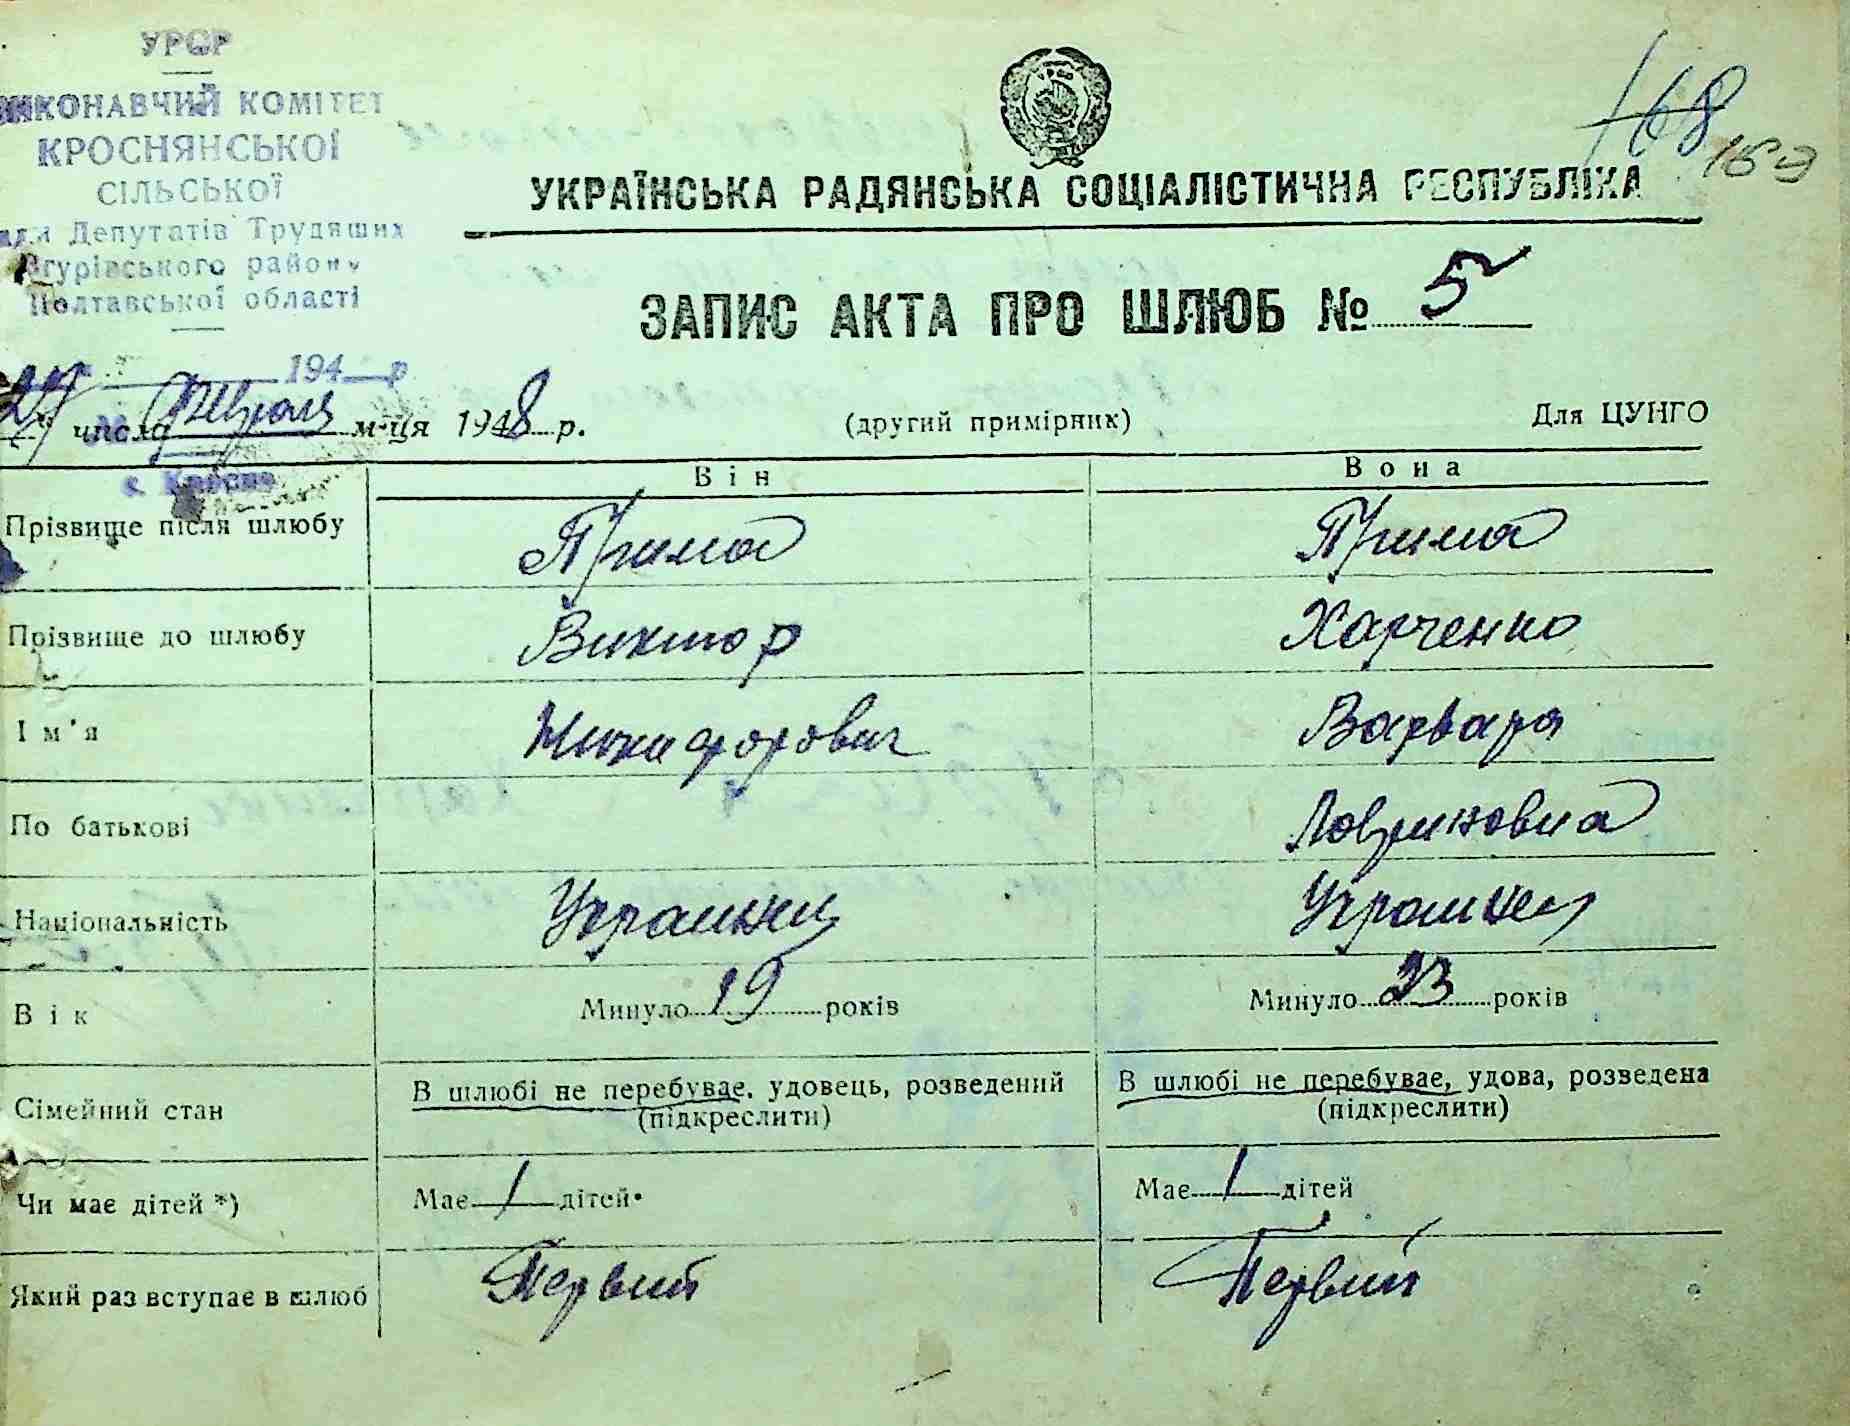 УРСР
ВИКОНАВЧИЙ КОМІТЕТ
КРОСНЯНСЬКОЇ
СІЛЬСЬКОЇ
Ради Депутатів Трудящих
Згурівського району
Полтавської області
194 р.
с. Кросна
168
169
УКРАЇНСЬКА РАДЯНСЬКА СОЦІАЛІСТИЧНА РЕСПУБЛІКА
ЗАПИС АКТА ПРО ШЛЮБ № 5
числа Февраля м-ця 1948 р. (другий примірник) Для ЦУНГО
Він Вона
Прізвище після шлюбу Прима Прима
Прізвище до шлюбу Виктор Харченко
Ім'я Никифорович Варвара
По батькові
Національність Украинец Украинка
Вік Минуло 19 років Минуло 23 років
Сімейний стан В шлюбі не перебуває, удовець, розведений (підкреслити) В шлюбі не перебуває, удова, розведена (підкреслити)
Чи має дітей *) Має / дітей Має / дітей
Який раз вступає в шлюб Первий Первий